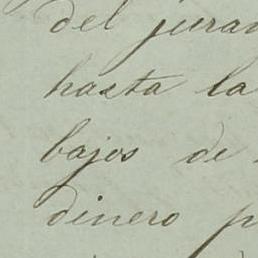 del juran
hasta la
bajos de
dinero p